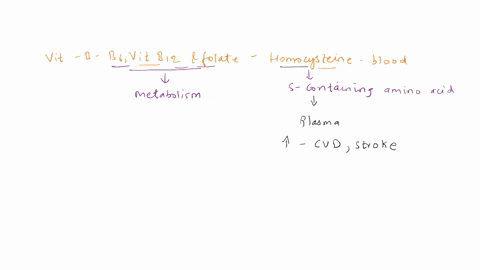 Vit - B - B6, Vit B12 & folate - Homocysteine - blood
↓ ↓
metabolism S- containing amino acid
↓
Plasma
↑ - CVD, stroke